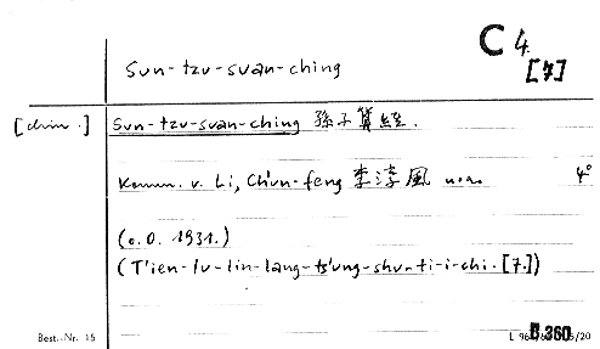 C 4
[7]
Sun-tzu-suan-ching
[chin.] Sun-tzu-suan-ching 孫子算經.
Komm. v. Li, Ch'un-feng 李淳風 u.a. 4°
(o.O. 1931.)
(T'ien-lu-lin-lang-ts'ung-shu-ti-i-chi.[7.])
Best.-Nr. 15 B 360 5/20